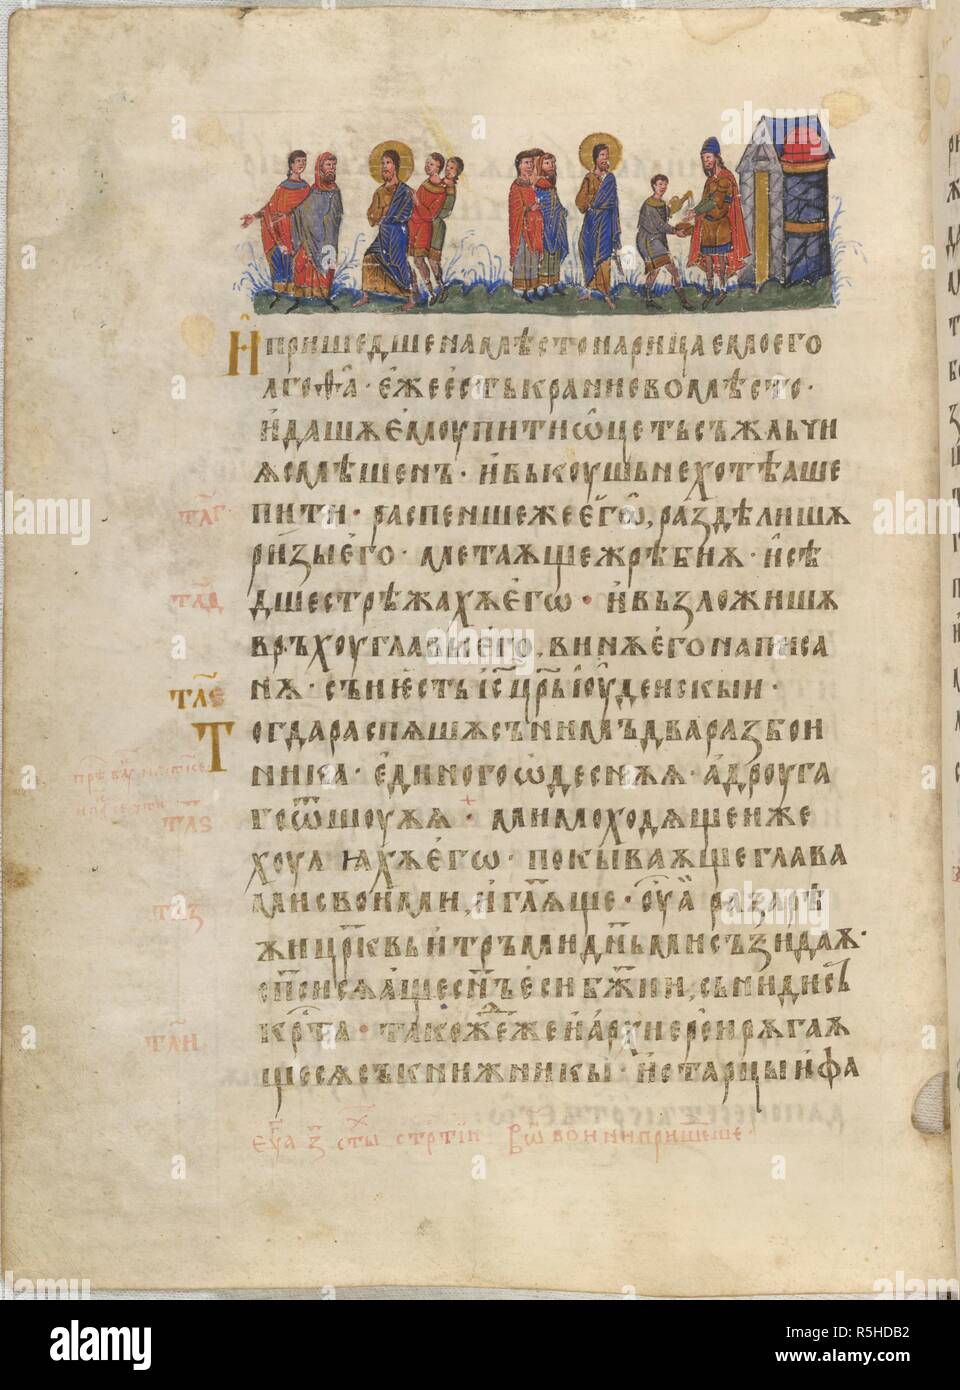 И҆ пришедшена мѣсто нарицаемое го
лгоѳа҃ · е҆же е҆сть краниево мѣсто ·
и҆ дашѧ е҆моу пити ѡ҆цеть съ жльчи
ѫ смѣшенъ · и҆ вькоушь не хотѣаше
тл҃г
пити · распеншеже е҆го̀ , раздѣлишѧ
ризы е҆го · метаѫще жрѣбиѫ · и҆ сѣ
тл҃д
дше стрѣжахѫ е҆го · и҆ възложишѧ
връхоу главы е҆го , винѫ е҆го написа
тл҃е
нѫ · съи е҆сть іс҃ цр҃ь і҆оудеискыи ·
Тогда распѧшѧ съ нимъ два разбои
ника · е҆диного ѡ҆деснѫѫ · а҆ дроуга
тл҃ѕ
го ѡ҆шоуѫѫ · мимоходѧщеиже
хоулꙗхѫ е҆го · покываѫще глава
тл҃з
ми своими , и҆ гл҃ѫще · оу҆а̀ разарѣ
ѫи цр҃квь и҆ трьми дн҃ьми съзидаѫ ·
сп҃сисѧ а҆ще сн҃ъ е҆си бж҃ии , съниди съ
кр҃та · такоже҆же и҆ архиереи рѫгаѫ
тл҃и
щесѧ съ книжникы · и҆ старцы и҆ фа
alamy
Image ID: R5HDB2
www.alamy.com